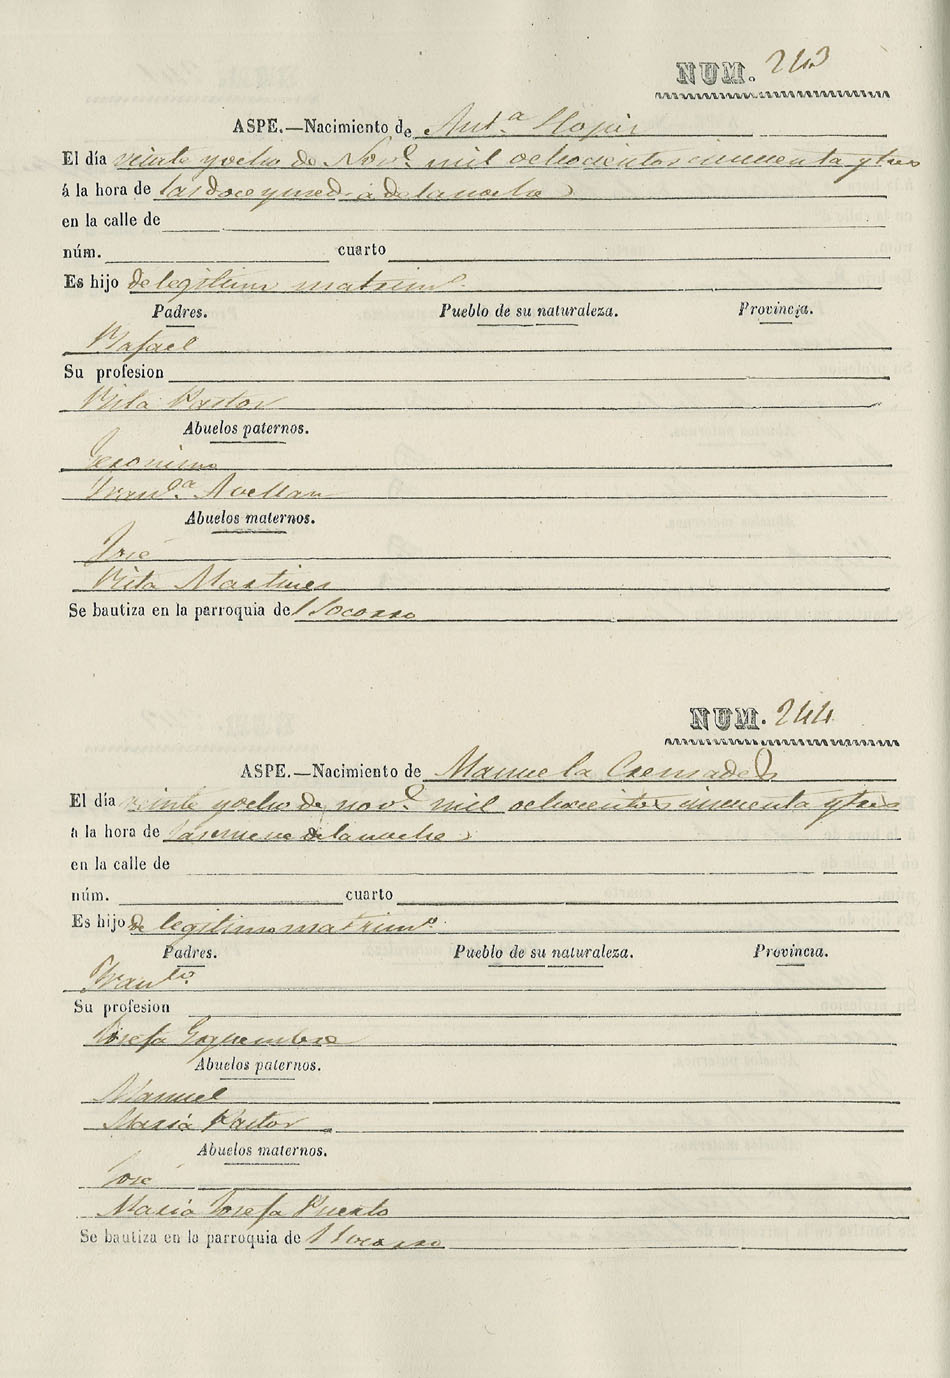 NUM. 243
ASPE.—Nacimiento de Antª
El día veinte y ocho de Novᵉ mil ochocientos cincuenta y tres
á la hora de las doce y media de la noche
en la calle de
núm. cuarto
Es hijo de legitimo matrimº
Padres. Pueblo de su naturaleza. Provincia.
Rafael
Su profesion
Rita Pastor
Abuelos paternos.
Geronimo
Franᶜª Avellan
Abuelos maternos.
José
Rita Martines
Se bautiza en la parroquia del Socorro
NUM. 244
ASPE.—Nacimiento de Manuela Cremades
El día veinte y ocho de novᵉ mil ochocientos cincuenta y tres
á la hora de las nueve de la noche
en la calle de
núm. cuarto
Es hijo de legitimo matrimº
Padres. Pueblo de su naturaleza. Provincia.
Franᶜº
Su profesion
Josefa Galinsoga
Abuelos paternos.
Manuel
Maria Pastor
Abuelos maternos.
José
Maria Josefa Puerto
Se bautiza en la parroquia del Socorro